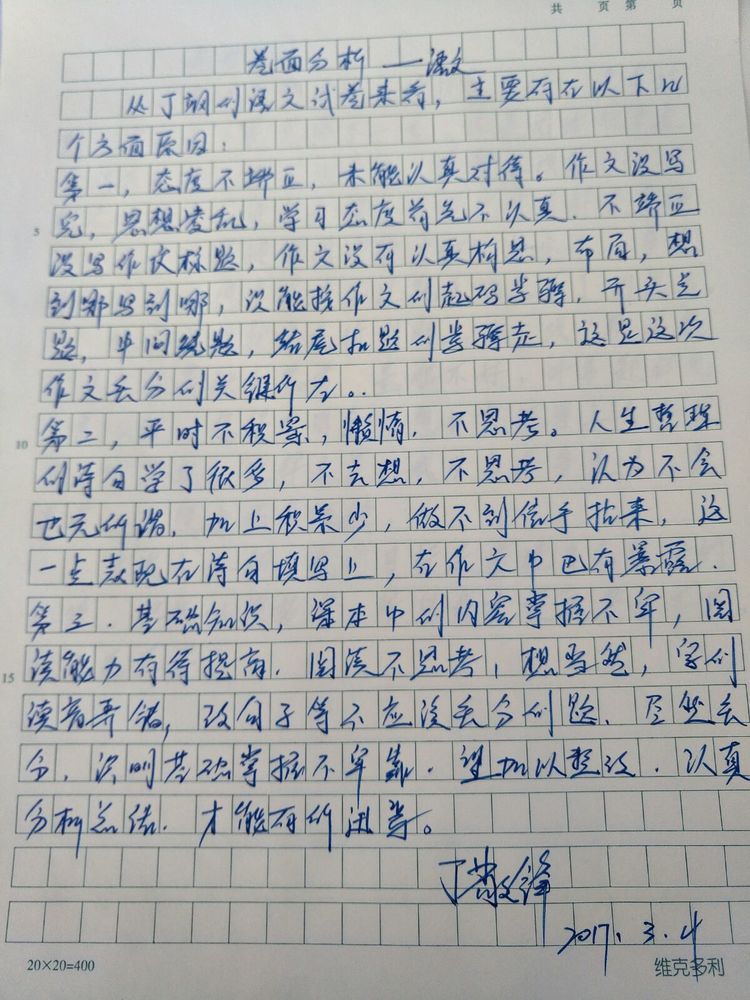 共 页 第 页
卷面分析 —语文
从丁钢的语文试卷来看，主要存在以下几
个方面原因：
第一，态度不端正，未能认真对待。作文没写
5
完，思想凌乱，学习态度首先不认真．不端正
没写作文标题，作文没有认真构思，布局，想
到哪写到哪，没能按作文的起码步骤，开头点
题，中间绕题，结尾扣题的步骤走，这是这次
作文丢分的关键所在。
10
第二，平时不积累，懒惰．不思考。人生哲理
的诗句学了很多，不去想，不思考，认为不会
也无所谓．加上积累少，做不到信手拈来，这
一点表现在诗句填写上，在作文中也有暴露．
第三．基础知识，课本中的内容掌握不牢，阅
15
读能力有待提高．阅读不思考，想当然，字的
读音弄错，改句子等不应该丢分的题．尽然丢
分．说明基础掌握不牢靠．望加以整改．认真
分析总结．才能有所进步。
2017.3.4
20×20=400
维克多利